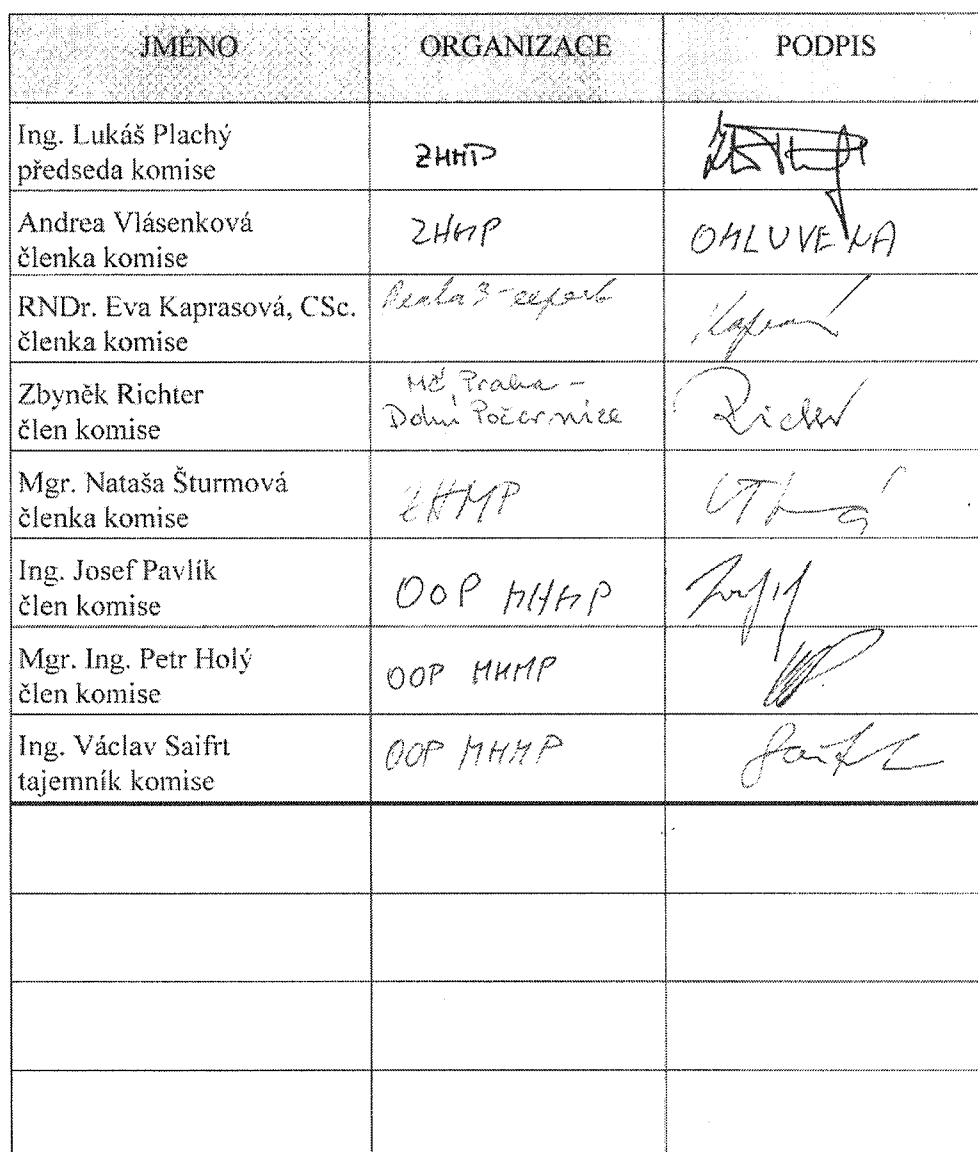 JMÉNO ORGANIZACE PODPIS
Ing. Lukáš Plachý
předseda komise
ZHMP
Andrea Vlásenková
členka komise
ZHMP
OMLUVENA
RNDr. Eva Kaprasová, CSc.
členka komise
Praha 3-expert
Zbyněk Richter
člen komise
MČ Praha -
Dolní Počernice
Richter
Mgr. Nataša Šturmová
členka komise
ZHMP
Ing. Josef Pavlík
člen komise
OOP MHMP
Mgr. Ing. Petr Holý
člen komise
OOP MHMP
Ing. Václav Saifrt
tajemník komise
OOP MHMP